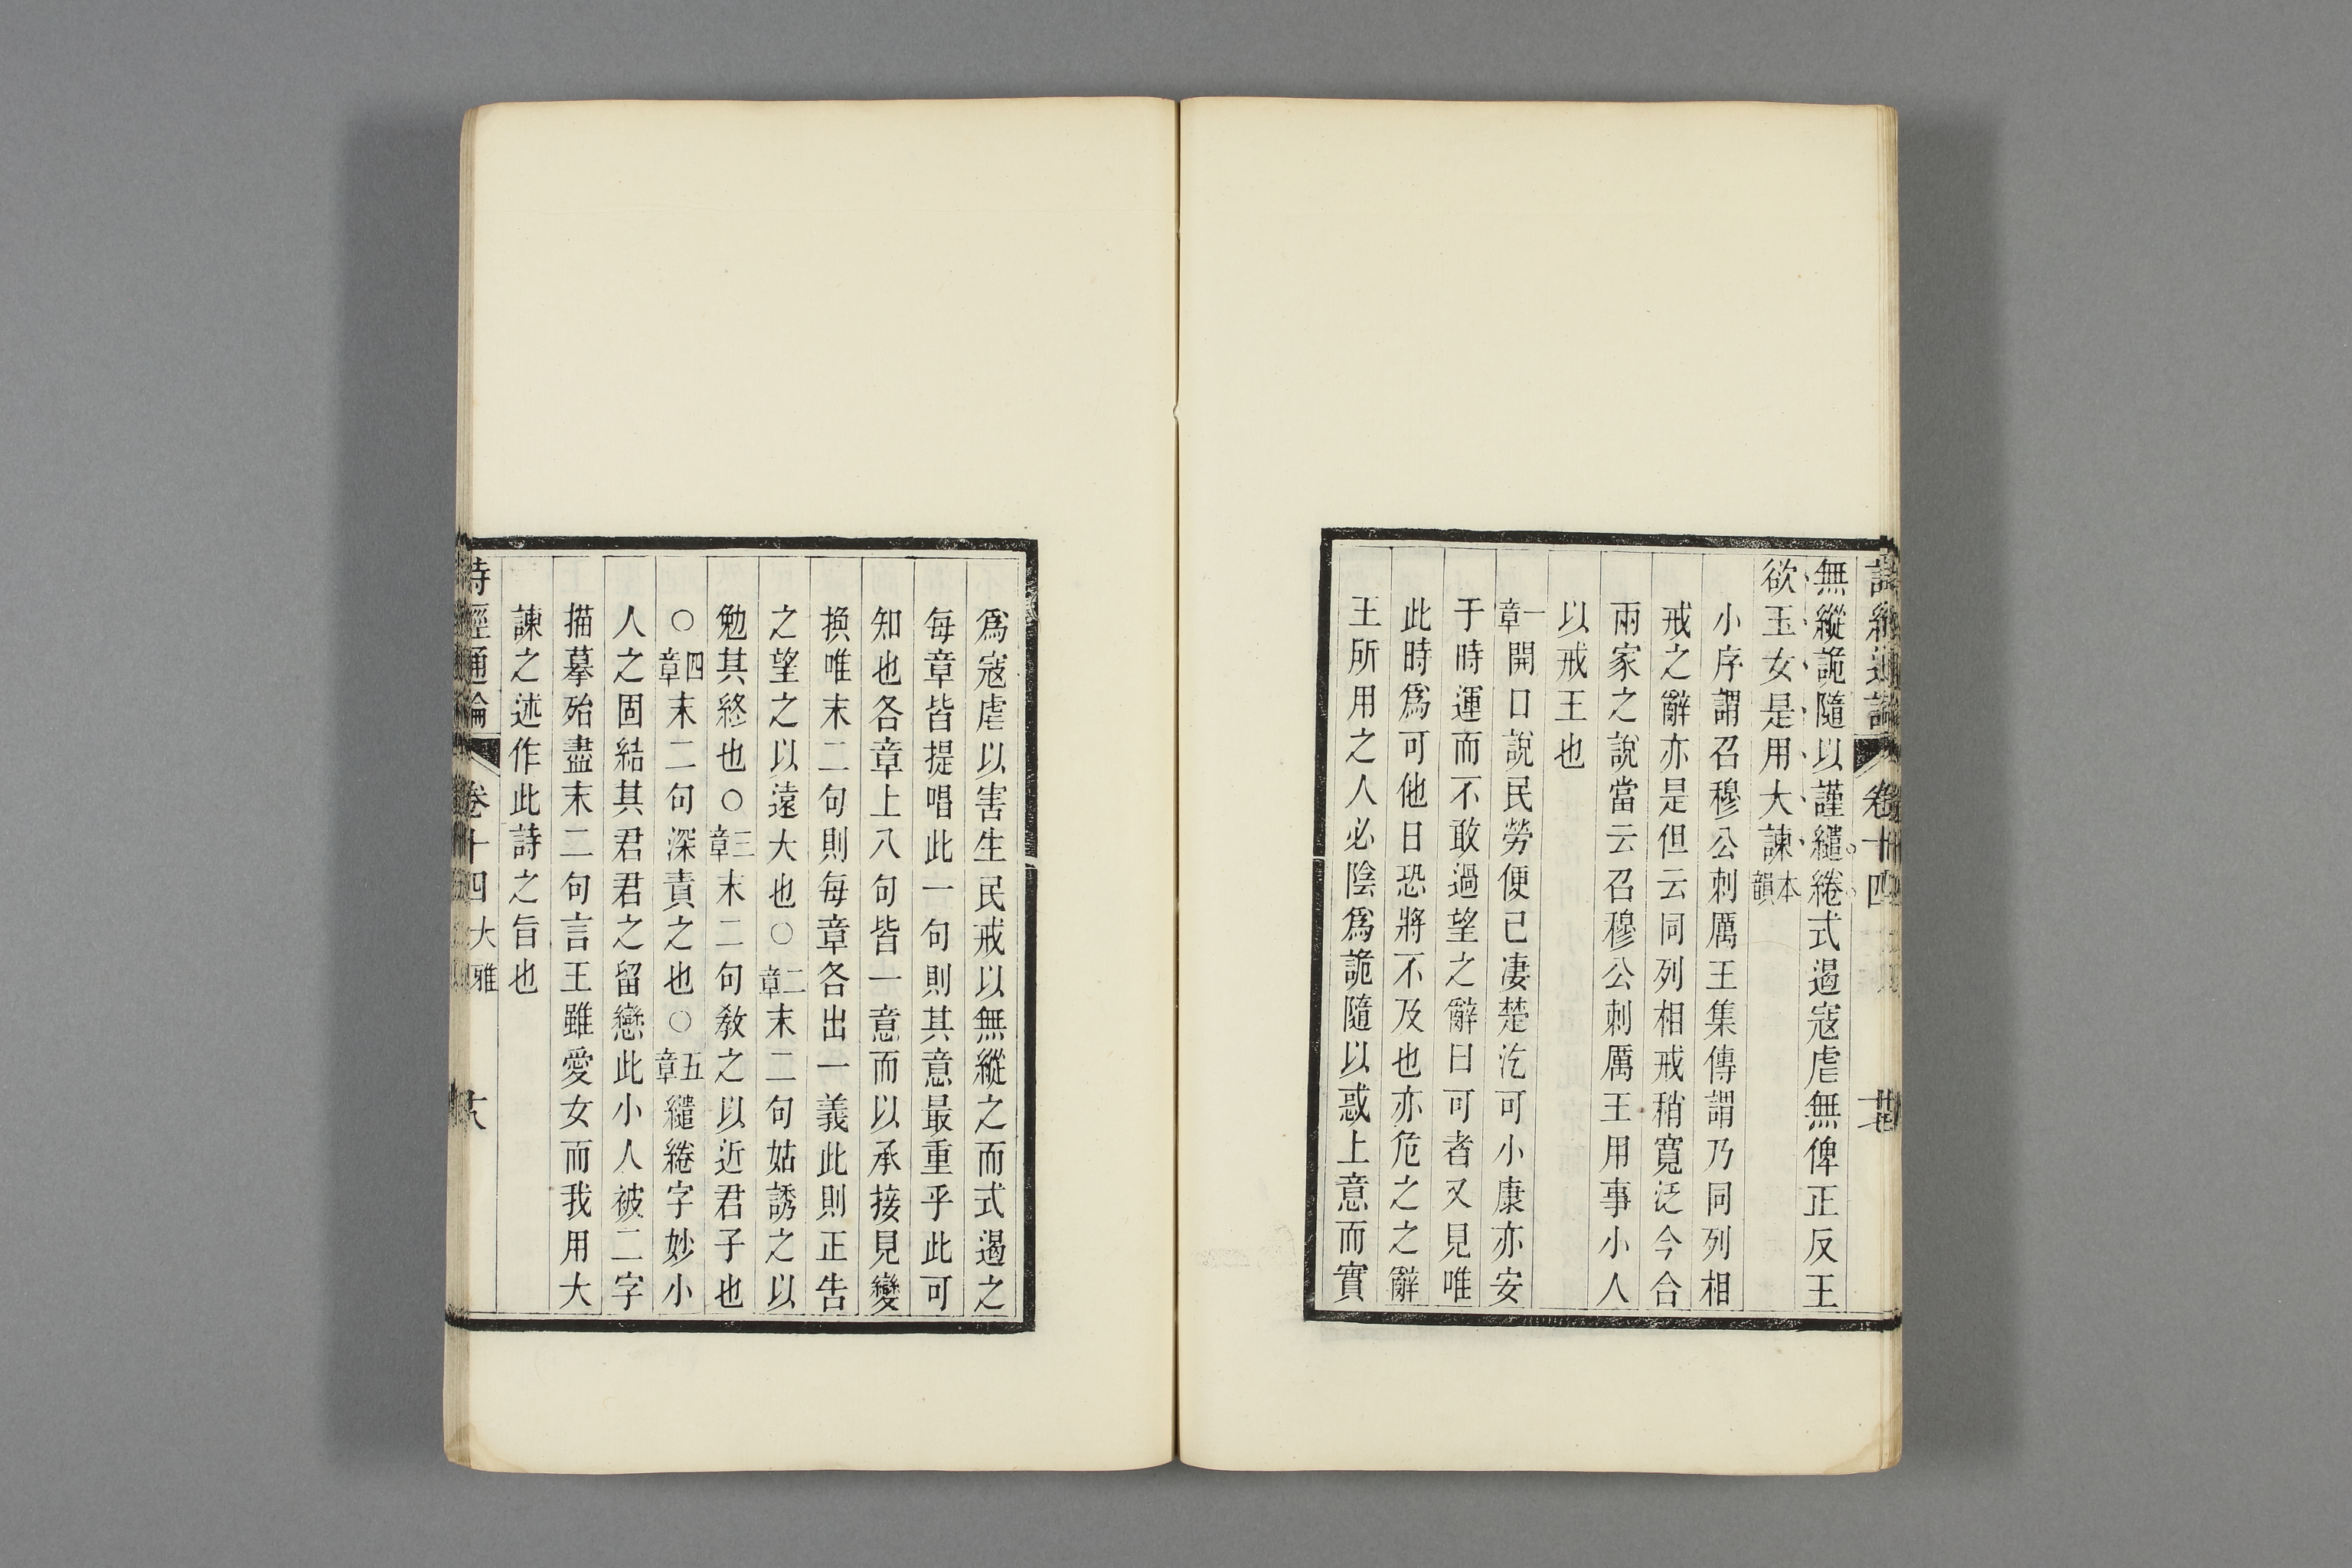 無縱詭隨以謹繾綣式遏寇虐無俾正反王
欲玉女是用大諫本韻
小序謂召穆公刺厲王集傳謂乃同列相
戒之辭亦是但云同列相戒稍寬泛今合
兩家之說當云召穆公刺厲王用事小人
以戒王也
一章開口說民勞便已凄楚汔可小康亦安
于時運而不敢過望之辭曰可者又見唯
此時爲可他日恐將不及也亦危之之辭
王所用之人必陰爲詭隨以惑上意而實
爲寇虐以害生民戒以無縱之而式遏之
每章皆提唱此一句則其意最重乎此可
知也各章上八句皆一意而以承接見變
換唯末二句則每章各出一義此則正告
之望之以遠大也○二章末二句姑誘之以
勉其終也○三章末二句敎之以近君子也
○四章末二句深責之也○五章繾綣字妙小
人之固結其君君之留戀此小人被二字
描摹殆盡末二句言王雖愛女而我用大
諫之述作此詩之旨也
詩經通論 卷十四 大雅